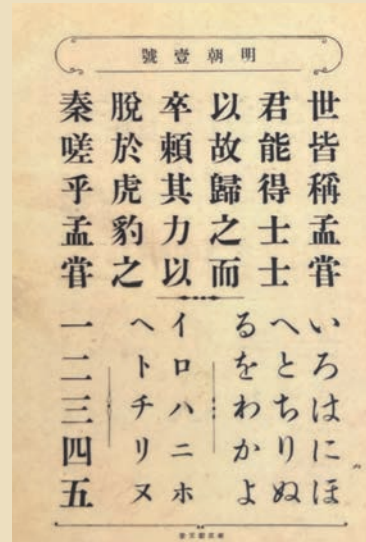 明朝壹號
世皆稱孟甞
君能得士士
以故歸之而
卒賴其力以
脫於虎豹之
秦嗟乎孟甞
いろはにほ
へとちりぬ
るをわかよ
イロハニホ
ヘトチリヌ
一二三四五